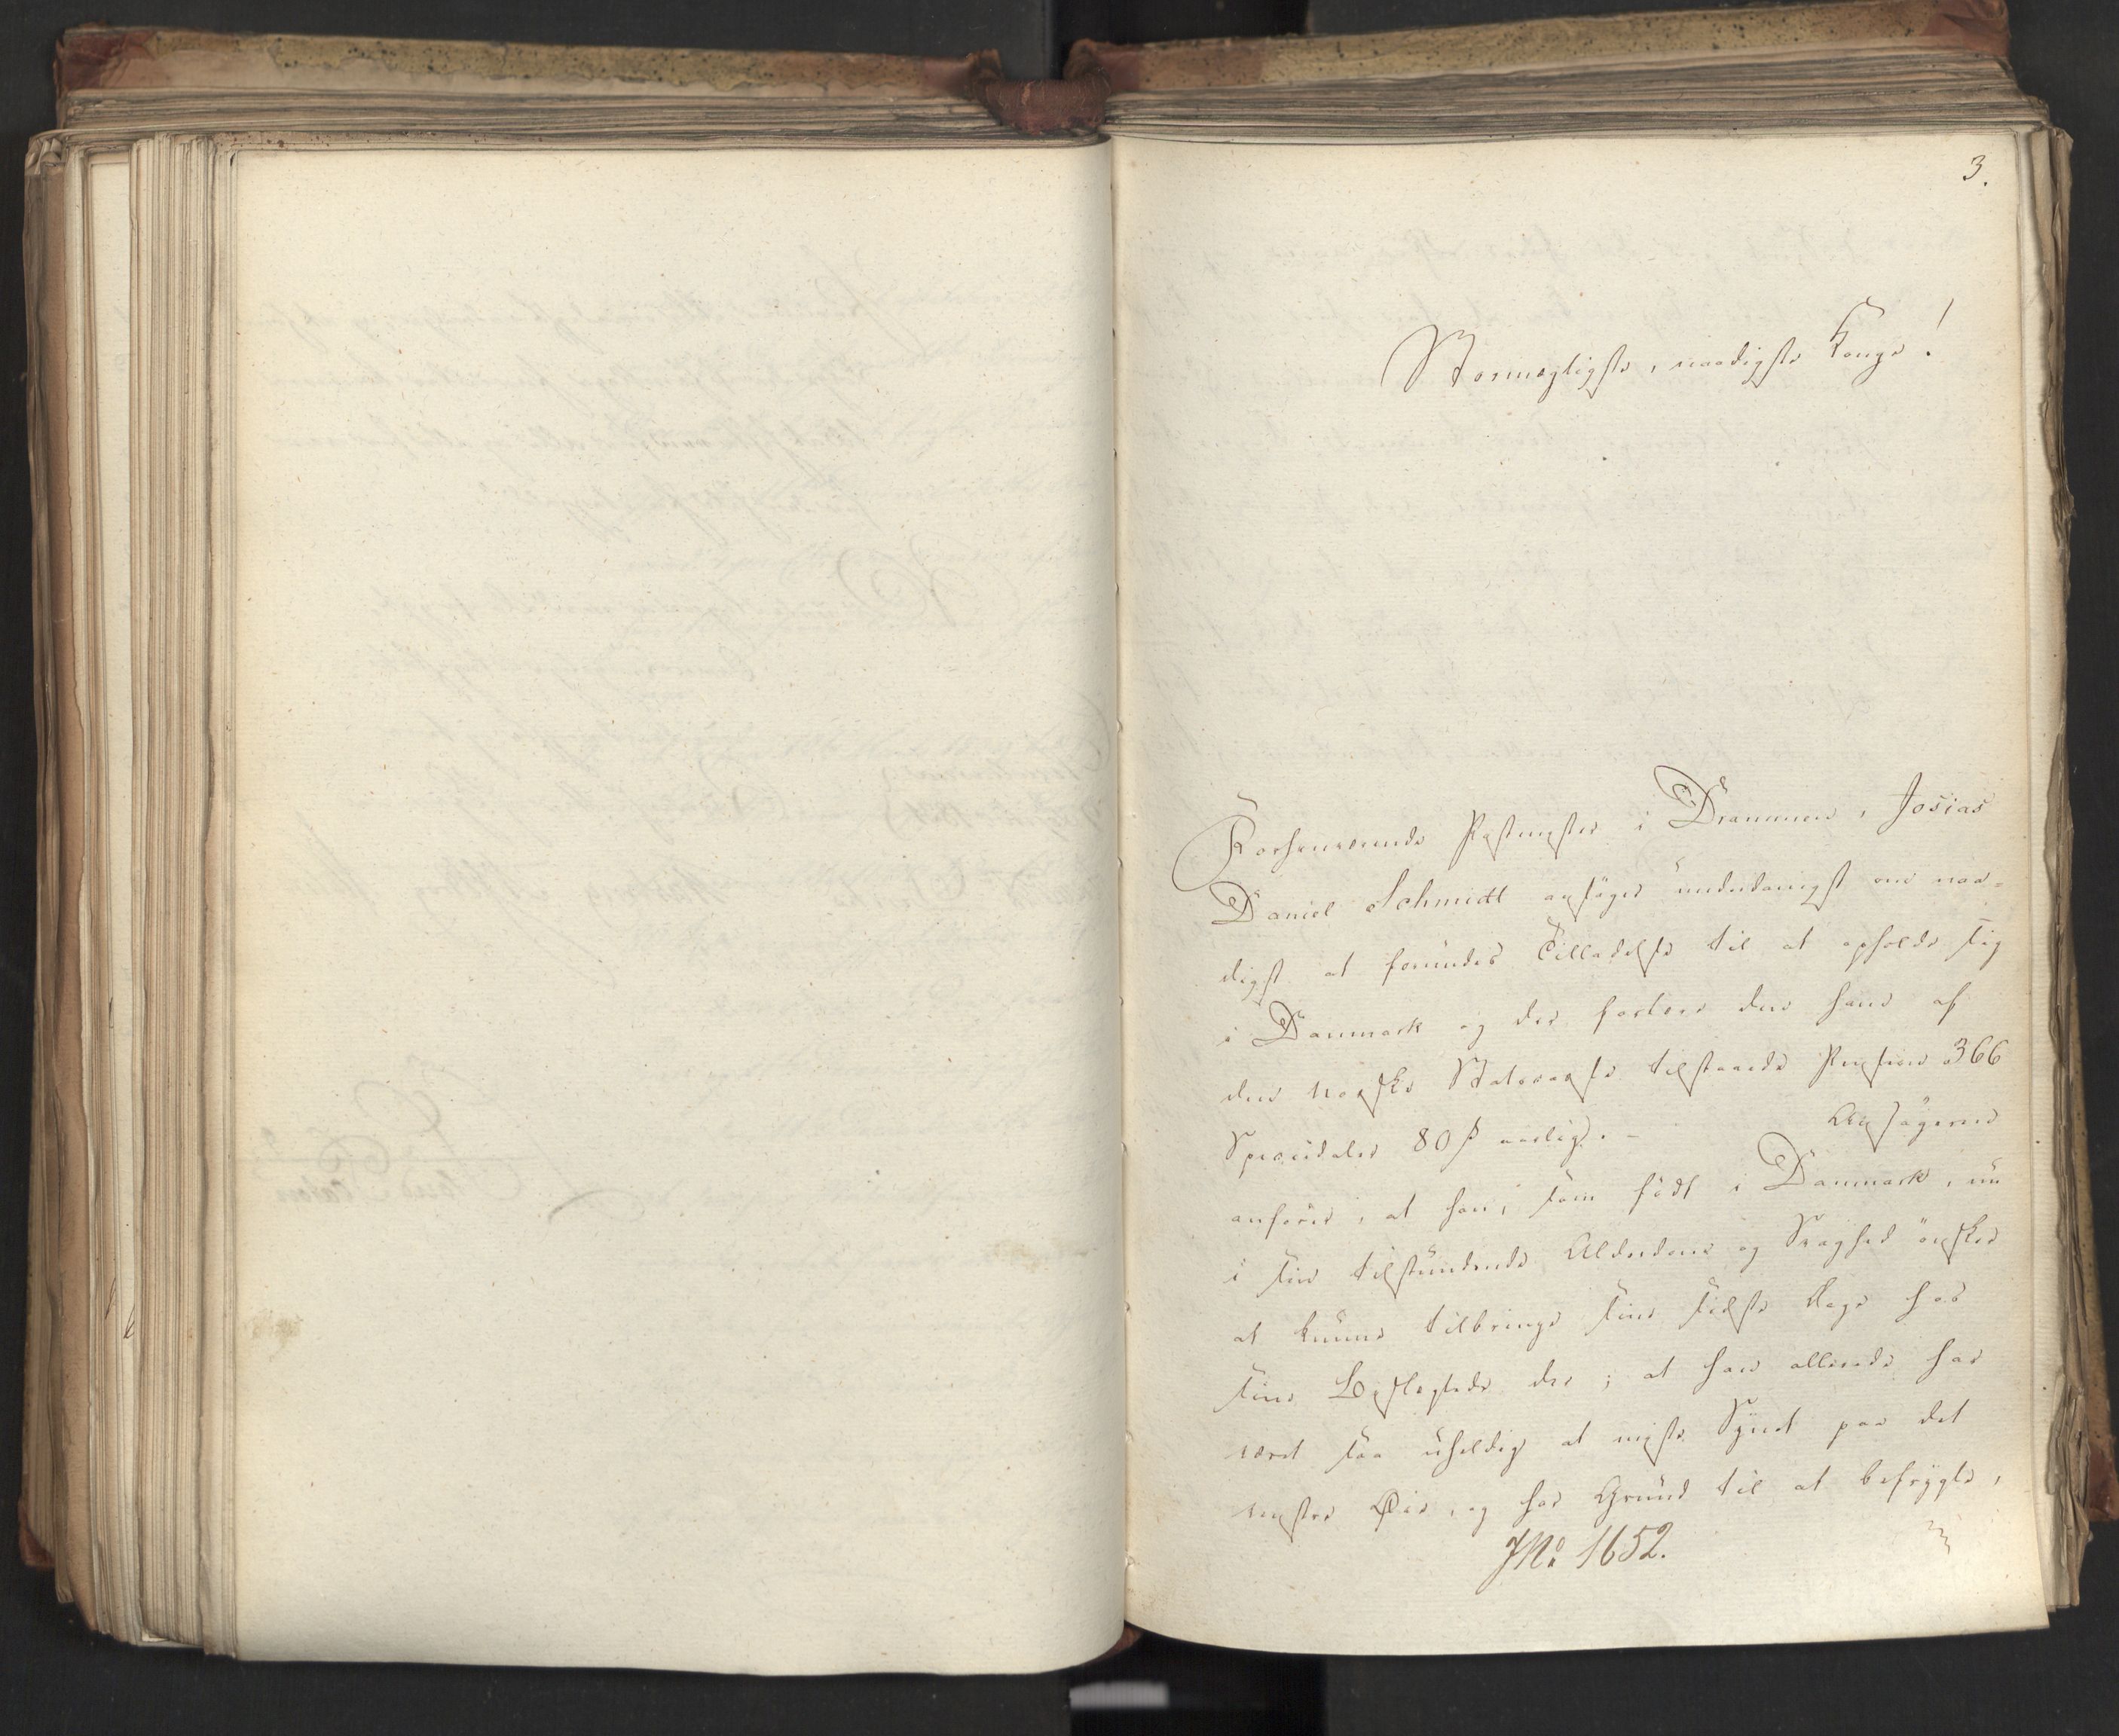 3.
Stormægtigste, naadigste Konge!
Forhenværende Postmester i Drammen, Josias
Daniel Schmidt ansøger underdanigst om naa-
digst at forundes Tilladelse til at opholde sig
i Danmark og der fortære den ham af
den norske Statscasse tilstaaede Pension 366
Speciedaler 80 s aarlig. - Ansøgeren
anfører, at han, som født i Danmark, nu
i sin tilstundende Alderdom og Svaghed ønsker
at kunne tilbringe sine sidste Dage hos
sine Beslægtede der; at han allerede har
været saa uheldig at miste Synet paa det
venstre Øie, og har Grund til at befrygte,
JNo 1652.